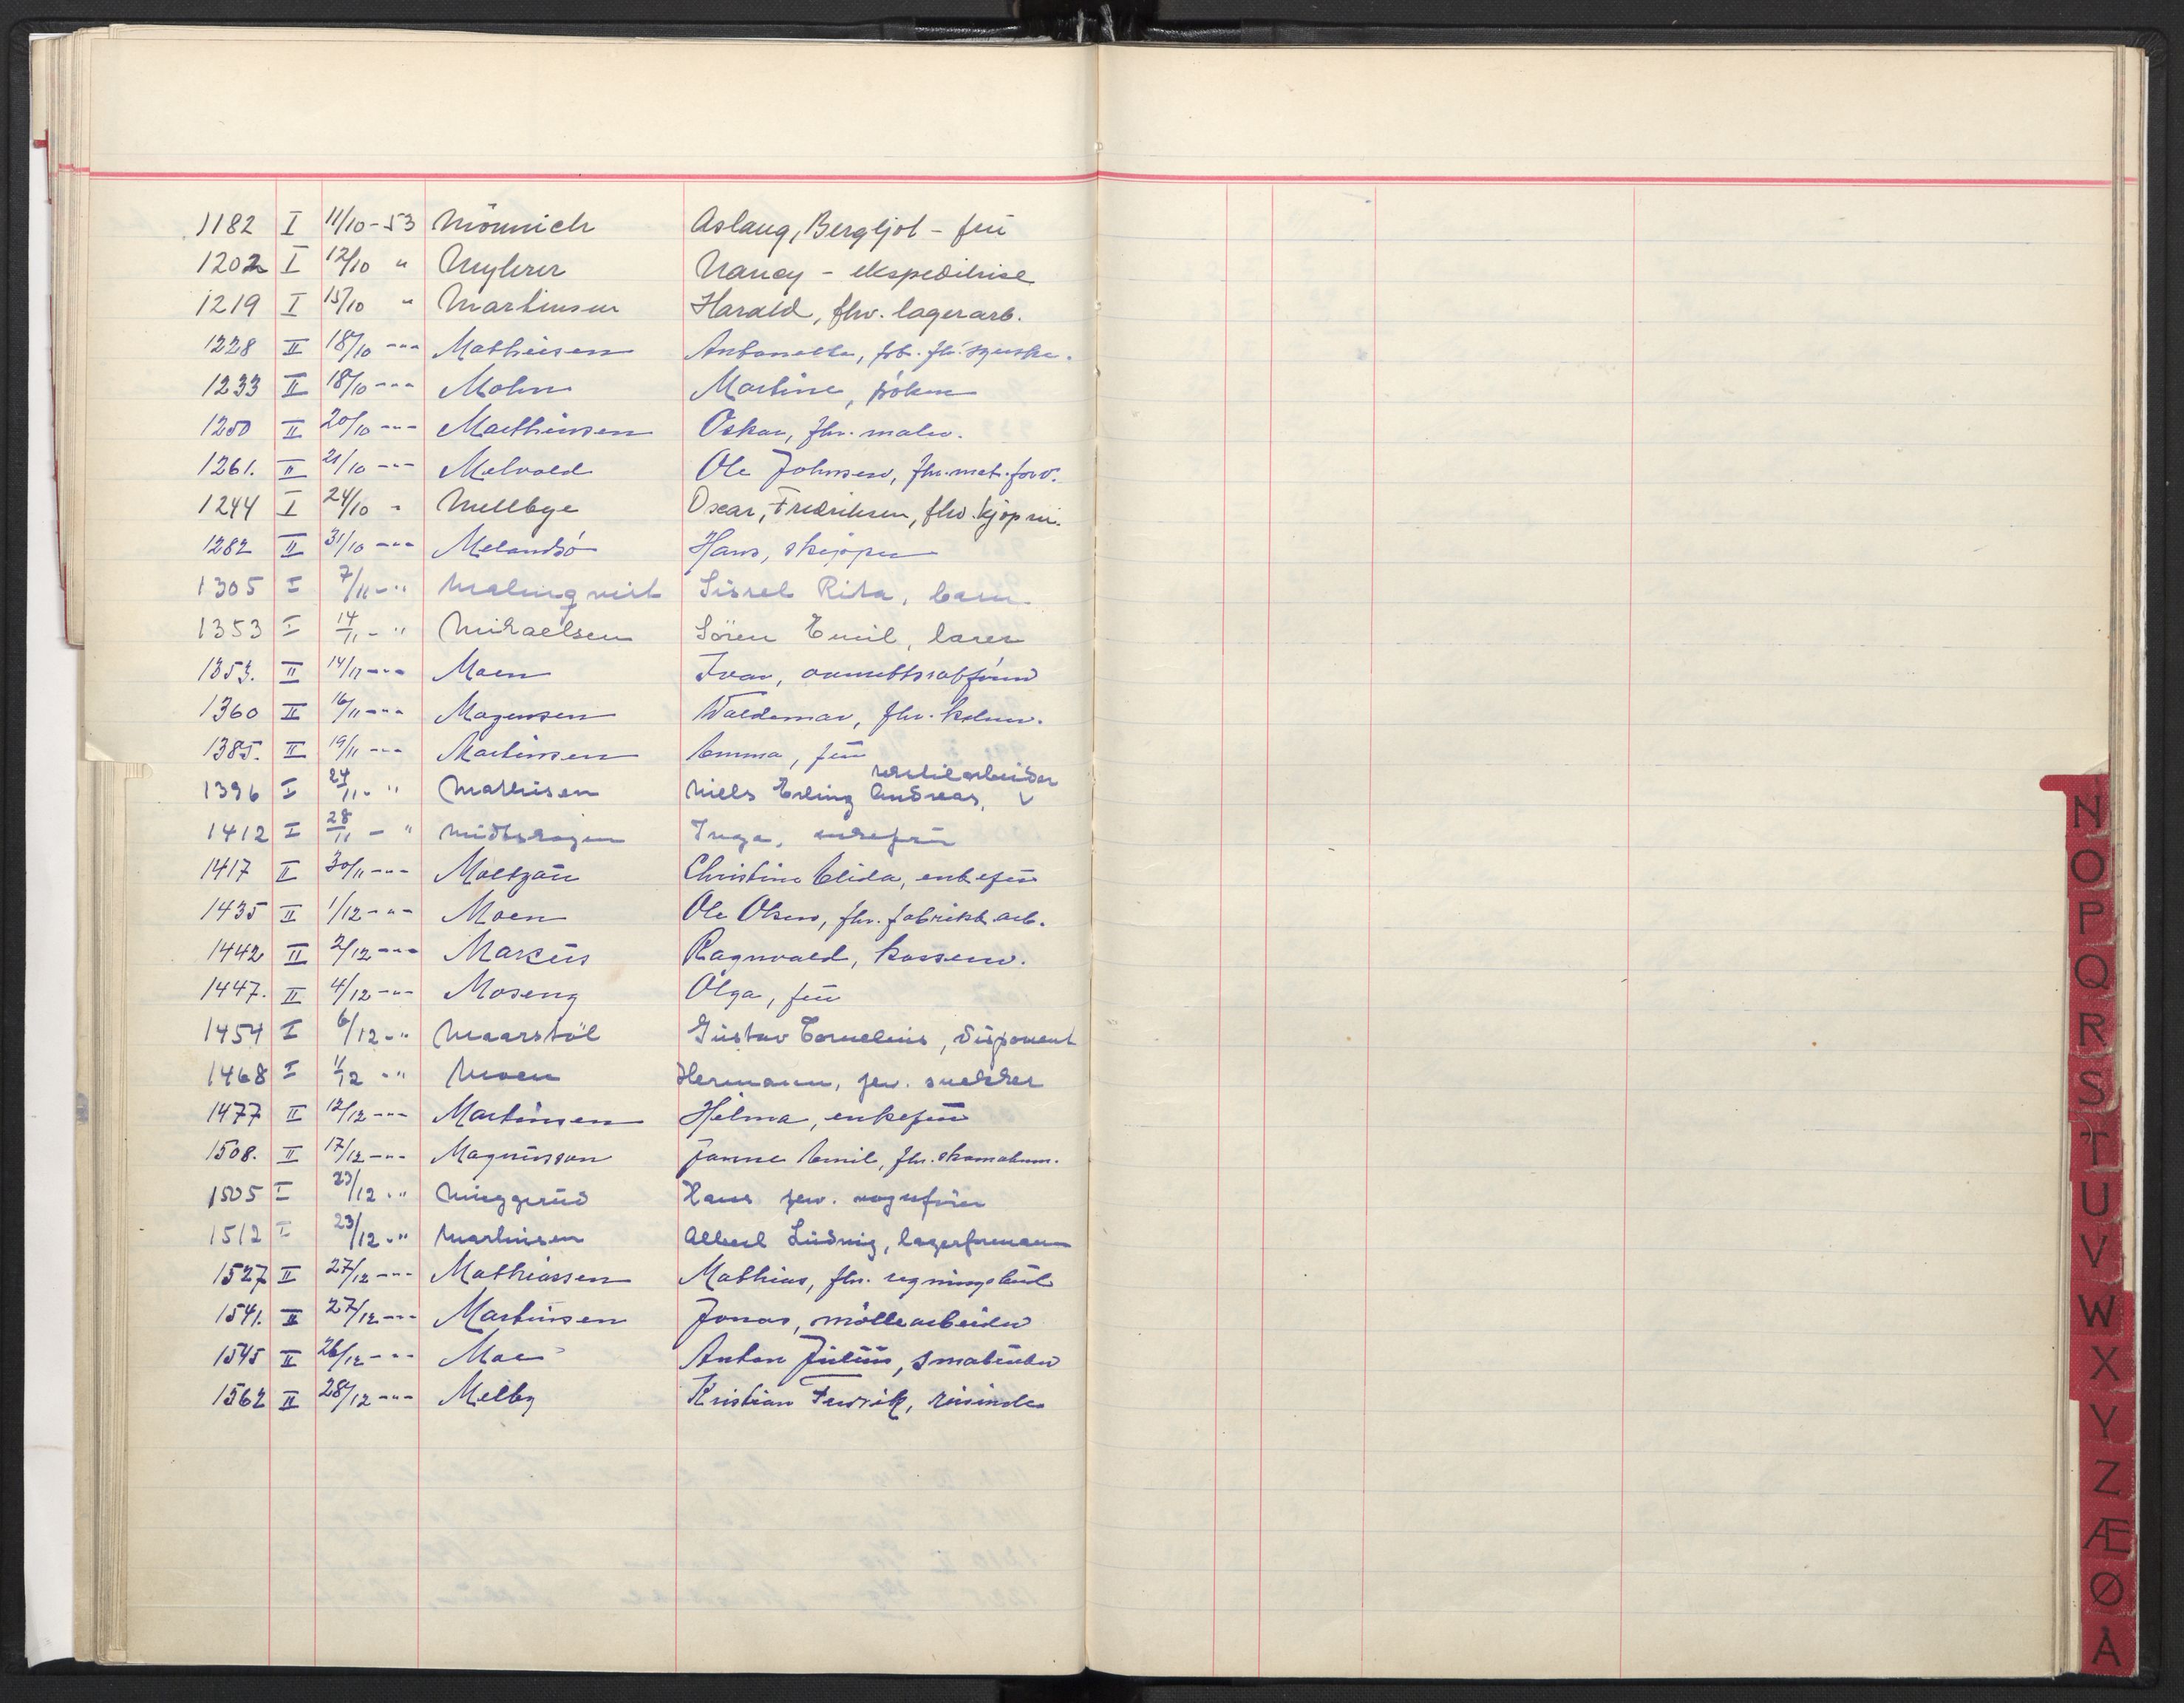 1182 I 11/10-53 Mönnich Aslaug, Bergljot - frü
1202 I 12/10 " Myhrer Nancy - ekspeditrise
1219 I 15/10 " Martinsen Harald, fhv. lagerarb.
1228 II 18/10 -"- Mathiesen Antonette, fhv.
1233 II 18/10 -"- Mohn Martine, frøken
1250 II 20/10 -"- Matthiesen Oskar, fhv. maler.
1261. II 21/10 -"- Melvold Ole Johnsen, fhv. mat. forv.
1244 I 24/10 " Mellbye Oscar, Fredriksen, fhv. kjøpm.
1282 II 31/10 -"- Melandsö Hans, skipper
1305 I 7/11 - " Malmqvist Sissel Rita, barn
1353 I 14/11 - " Mikaelsen Sören Emil,
1353. II 14/11 -"- Moen Ivar,
1360 II 16/11 -"- Magnussen Waldemar, fhv.
1385. II 19/11 -"- Martinsen Emma, frü
tekstilarbeider
1396 I 24/11 - " Mathisen Niels Erling Andreas, V
1412 I 28/11 - " Midtskogen Inga, enkefrü
1417 II 30/11 -"- Moltzaü Christine Elida, enkefrü
1435 II 1/12 -"- Moen Ole Olsen, fhv. fabrikkarb.
1442 II 2/12 -"- Marküs Ragnvald, kasserer.
1447. II 4/12 -"- Moseng Olga, frü
1454 I 6/12 - " Maarstöl Güstav Cornelius, disponent
1468 I 11/12 - " Moen Hermann, fhv. snekker
1477 II 12/12 -"- Martinsen Hilma, enkefrü
1508. II 17/12 -"- Magnüsson Janne Emil, fhv. skomakerm.
1505 I 23/12 - " Müggerud Hans fhv. vognfører
1512 I 23/12 - " Martinsen Albert Lüdvig, lagerformann
1527 II 27/12 -"- Mathiassen Mathias, fhv. regningsbud
1541. II 27/12 -"- Martinsen Jonas, möllearbeider
1545 II 26/12 -"- Moe Anton Jülius, småbrüker
1562 II 28/12 -"- Melby Kristian Fredrik, reisende
N
O
P
Q
R
S
T
U
V
W
X
Y
Z
Æ
Ø
Å